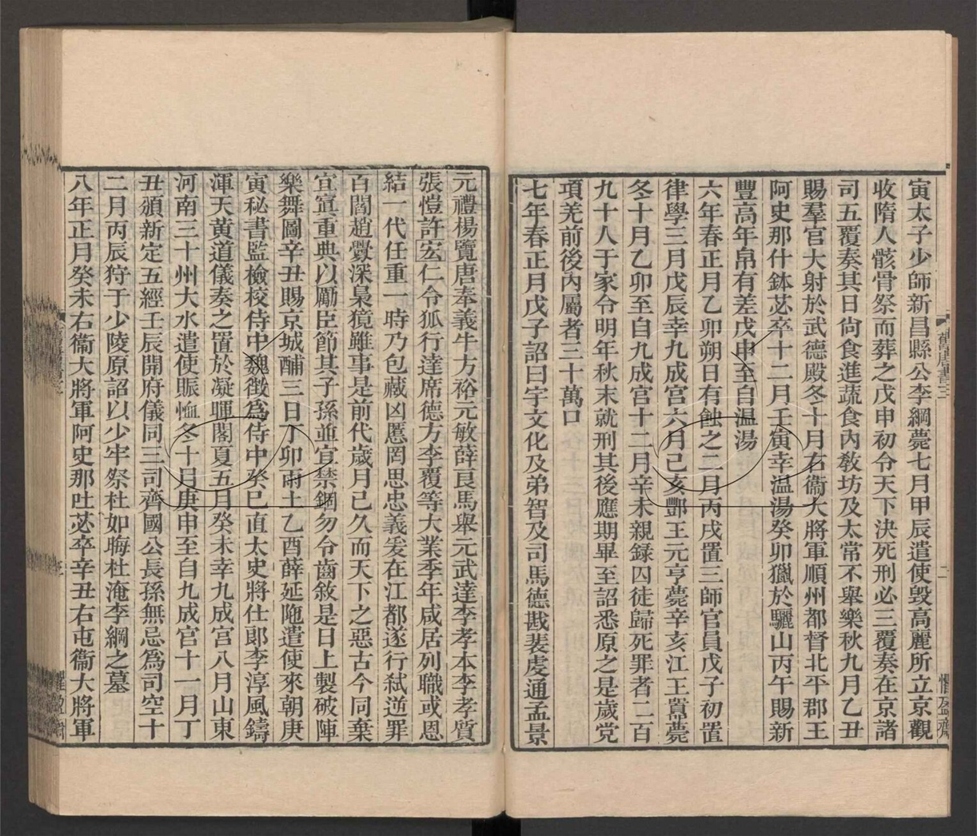 寅太子少師新昌縣公李綱薨七月甲辰遣使毀高麗所立京觀
收隋人骸骨祭而葬之戊申初令天下決死刑必三覆奏在京諸
司五覆奏其日尙食進蔬食內敎坊及太常不舉樂秋九月乙丑
賜羣官大射於武德殿冬十月右衞大將軍順州都督北平郡王
阿史那什鉢苾卒十二月壬寅幸温湯癸卯獵於驪山丙午賜新
豐高年帛有差戊申至自温湯
六年春正月乙卯朔日有蝕之二月丙戌置三師官員戊子初置
律學三月戊辰幸九成宫六月己亥酆王元亨薨辛亥江王囂薨
冬十月乙卯至自九成宫十二月辛未親録囚徒歸死罪者二百
九十人于家令明年秋末就刑其後應期畢至詔悉原之是歲党
項羌前後內屬者三十萬口
七年春正月戊子詔曰宇文化及弟智及司馬德戡裴虔通孟景
舊唐書三
二
懼盈齋
元禮楊覽唐奉義牛方裕元敏薛良馬舉元武達李孝本李孝質
張愷許宏仁令狐行達席德方李覆等大業季年咸居列職或恩
結一代任重一時乃包藏凶慝罔思忠義爰在江都遂行弑逆罪
百閻趙釁深梟獍雖事是前代歲月已久而天下之惡古今同棄
宜寘重典以勵臣節其子孫並宜禁錮勿令齒敘是日上製破陣
樂舞圖辛丑賜京城酺三日丁卯雨土乙酉薛延陁遣使來朝庚
寅秘書監檢校侍中魏徵爲侍中癸巳直太史將仕郞李淳風鑄
渾天黄道儀奏之置於凝暉閣夏五月癸未幸九成宫八月山東
河南三十州大水遣使賑恤冬十月庚申至自九成宫十一月丁
丑頒新定五經壬辰開府儀同三司齊國公長孫無忌爲司空十
二月丙辰狩于少陵原詔以少牢祭杜如晦杜淹李綱之墓
八年正月癸未右衞大將軍阿史那吐苾卒辛丑右屯衞大將軍